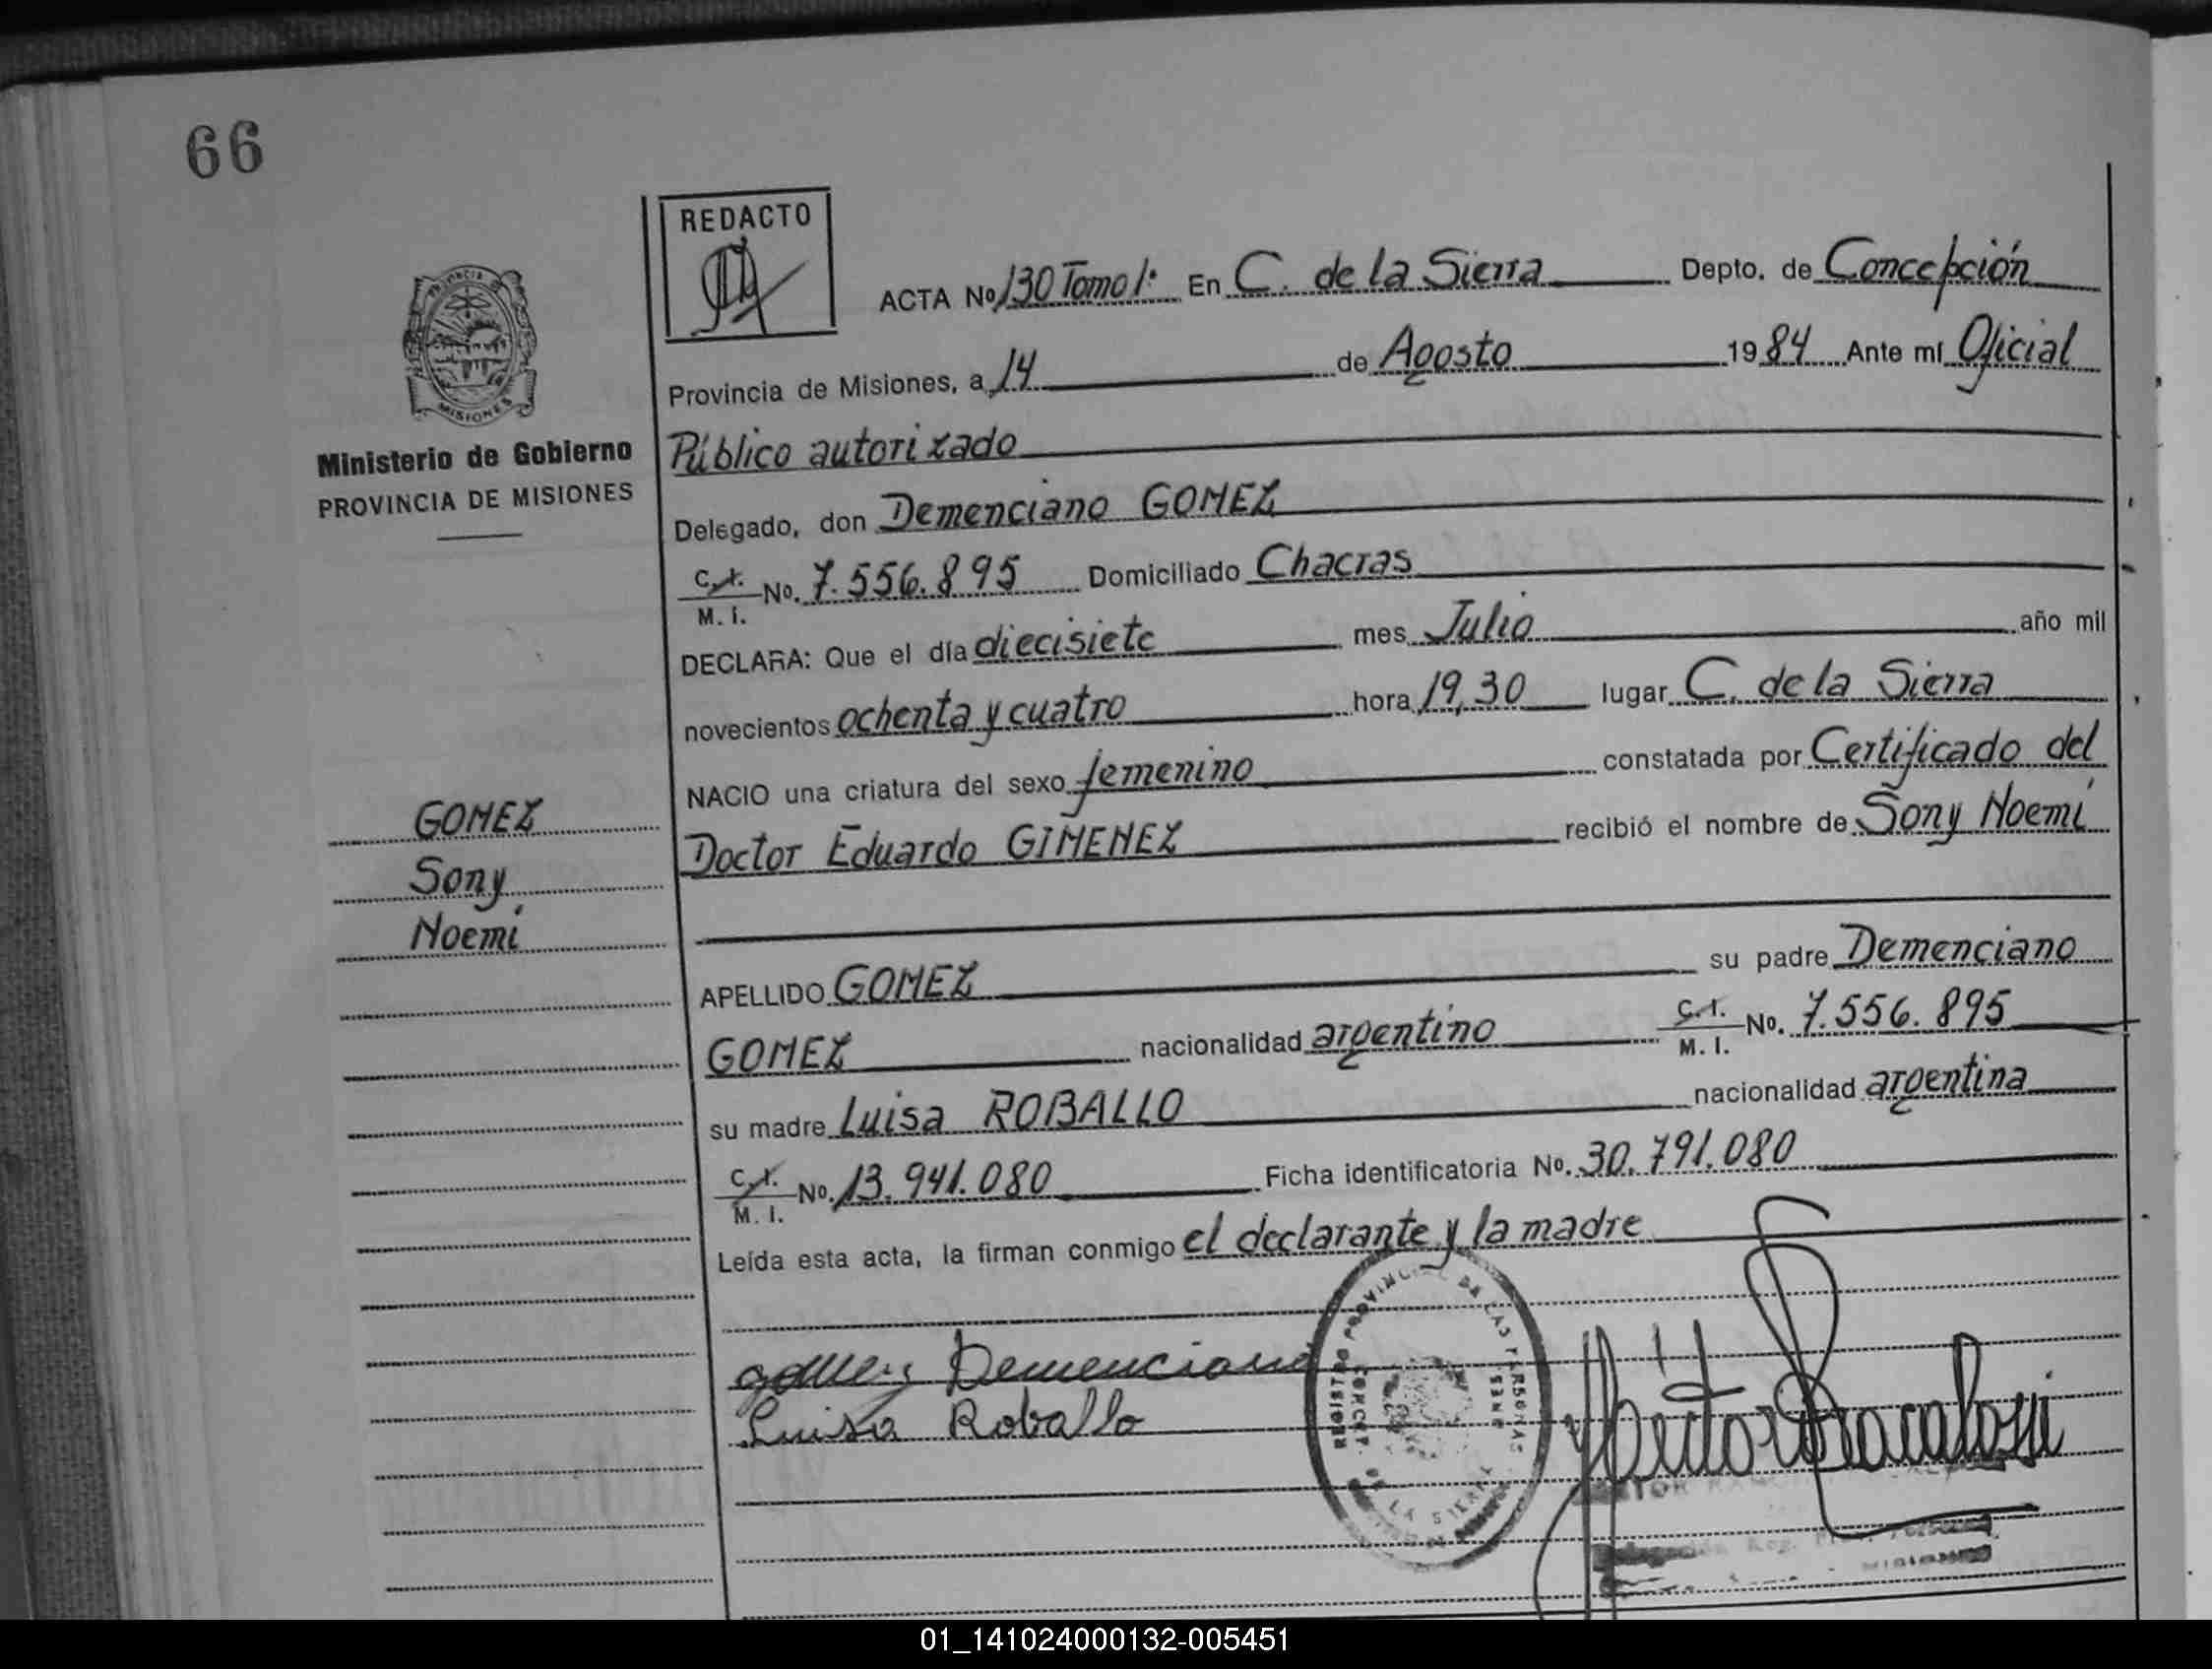 66
REDACTO
ACTA No 130 Tomo 1º En C. de la Sierra Depto. de Concepción
Provincia de Misiones, a 14 de Agosto 1984 Ante mí Oficial
PROVINCIA
MISIONES
Ministerio de Gobierno
PROVINCIA DE MISIONES
Público autorizado
Delegado, don Demenciano GOMEZ
C.I. M. I. No. 7.556.895 Domiciliado Chacras
DECLARA: Que el día diecisiete mes Julio año mil
novecientos ochenta y cuatro hora 19,30 lugar C. de la Sierra
NACIO una criatura del sexo femenino constatada por Certificado del
Doctor Eduardo GIMENEZ recibió el nombre de Sony Noemí
GOMEZ
Sony
Noemí
APELLIDO GOMEZ su padre Demenciano
GOMEZ nacionalidad argentino C.I. M. I. No. 7.556.895
su madre Luisa ROBALLO nacionalidad argentina
C.I. M. I. No. 13.941.080 Ficha identificatoria No. 30.791.080
Leída esta acta, la firman conmigo el declarante y la madre
gomez Demenciano
Luisa Roballo
REGISTRO PROVINCIAL DE LAS PERSONAS
DE LA SIERRA
01_141024000132-005451